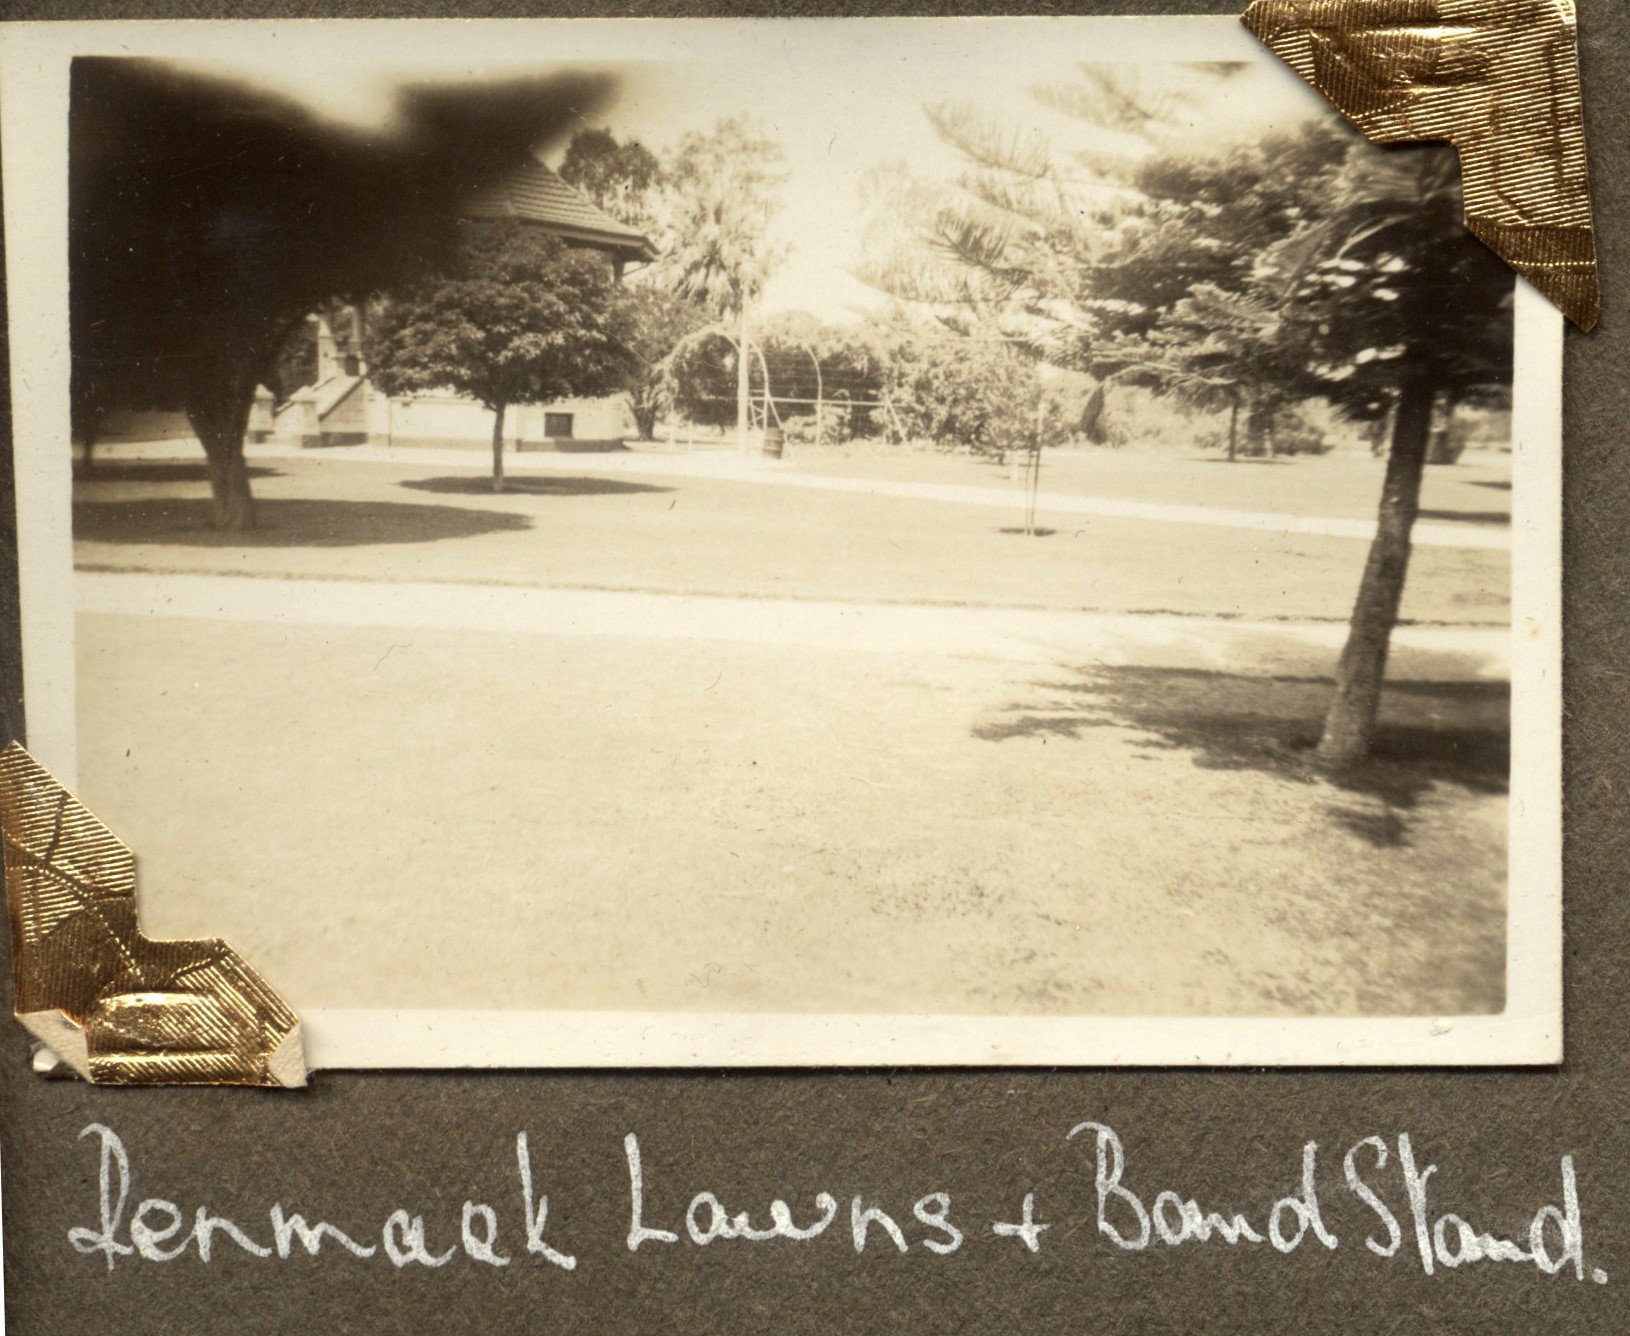 Renmark Lawns + Band Stand.